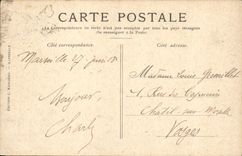 CARTE POSTALE
La Correspondance au recto n'est pas acceptée par tous les pays étrangers
(Se renseigner à la Poste)
Côté correspondance.
Côté adresse.
Marseille 27 juin
Bonjour
Charly
Madame Louise
1, Rue des Capucins
Chatel-sur-Moselle
Vosges